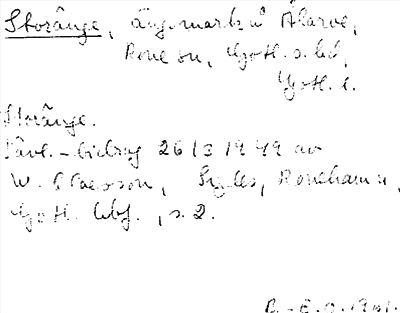 Storänge, äng.mark u Älarve,
Rone sn, Gotl. s. hd,
Gotl. l.
Storänge.
Tävl.-bidrag 26/3 1949 av
W. Claesson, Sigles, Ronehamn,
Gotl. hbf., s. 2.